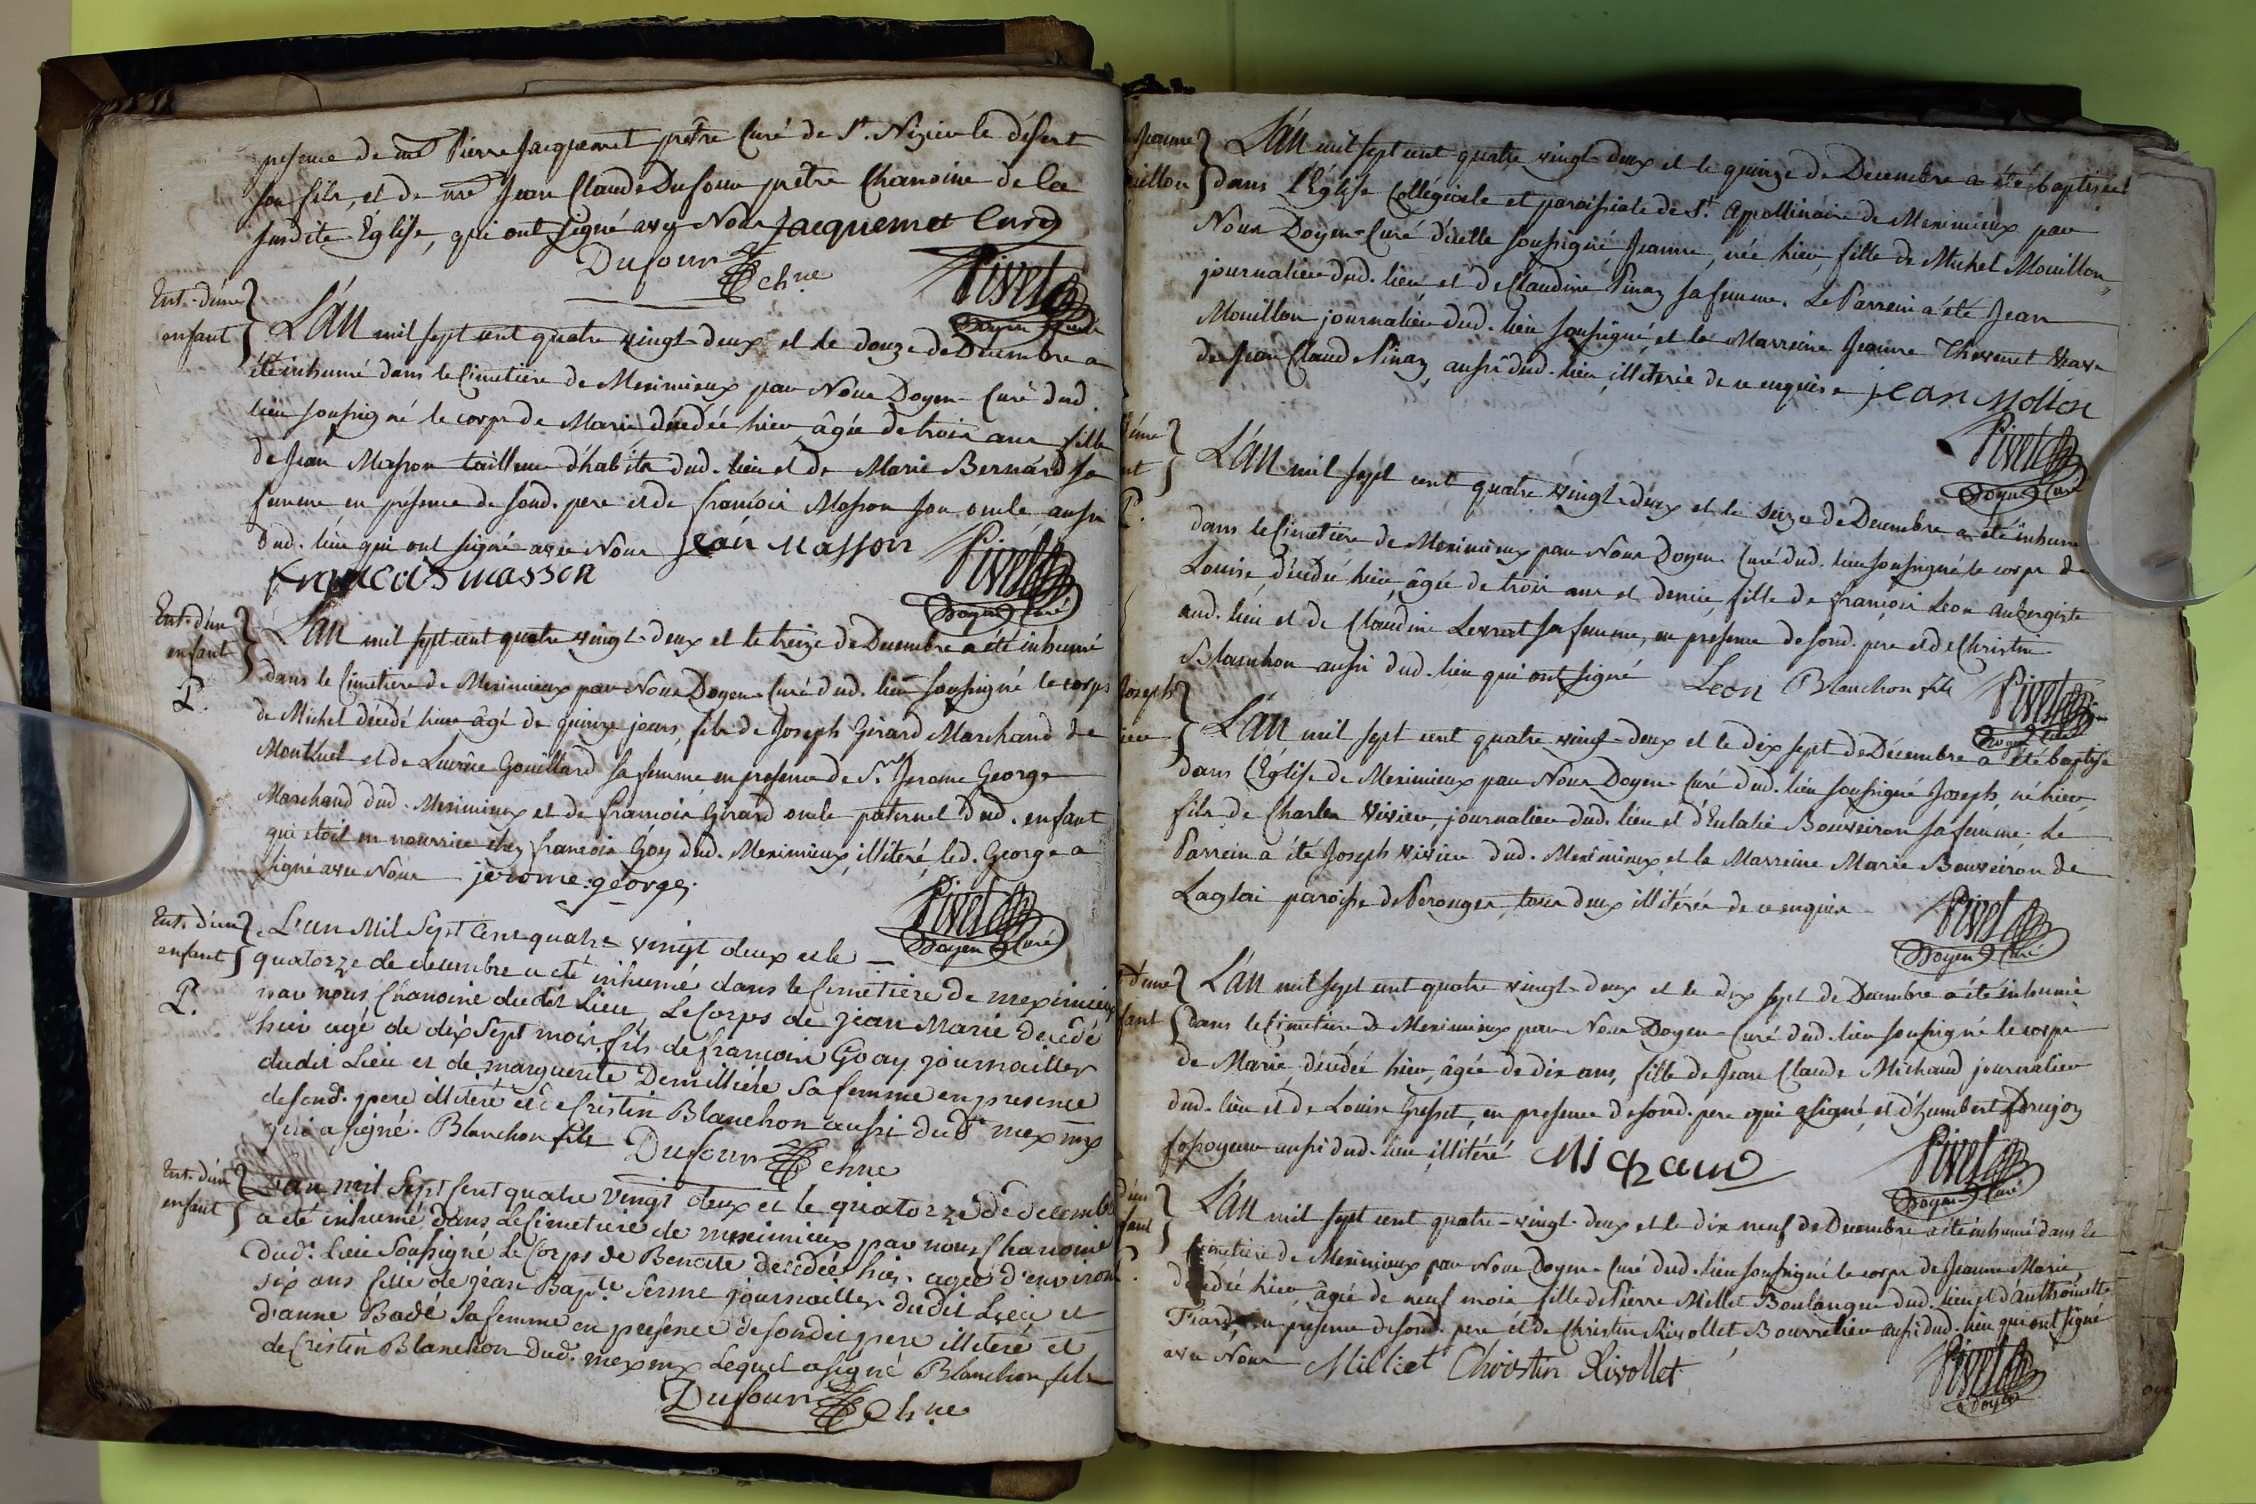 presence de mre Pierre Jacquemet prêtre Curé de St. Nizier le désert
son fils, et de mre Jean Claude Dufour prêtre Chanoine de la
susdite Église, qui ont signé avec Nous Jacquemet Curé
Dufour chne Pivet
Doyen Curé
Ent. d'une
enfant
L'an mil sept cent quatre vingt-deux et le douze de Décembre a
été inhumé dans le Cimetiere de Meximieux par Nous Doyen-Curé dud.
lieu soussigné le corps de Marie décédée hier âgée de trois ans fille
de Jean Masson tailleur d'habits dud. lieu et de Marie Bernard sa
femme en presence de sond. pere et de françois Masson son oncle aussi
dud. lieu qui ont signé avec Nous Jean Masson Pivet
francois masson Doyen Curé
Ent. d'un
enfant
P.
L'an mil sept cent quatre vingt-deux et le treize de Décembre a été inhumé
dans le Cimetiere de Meximieux par Nous Doyen-Curé dud. lieu soussigné le corps
de Michel décédé hier âgé de quinze jours, fils de Joseph Girard Marchand de
Montluel et de Lucrèce Gouillard sa femme, en presence de Sr. Jerome George
Marchand dud. Meximieux et de françois Girard oncle paternel dud. enfant
qui etoit en nourrice chez françois Goy dud. Meximieux, illiteré, led. George a
signé avec Nous jerome george Pivet
Doyen Curé
Ent. d'un
enfant
P.
L'an Mil Sept Cent quatre vingt deux et le
quatorze de decembre a eté inhumé dans le Cimetiere de meximieux
par nous Chanoine dudit Lieu, Le Corps de jean Marie decedé
hier agé de dix Sept mois fils de françois Goay journaillier
dudit Lieu et de marguerite Demilliere Sa femme en presence
de sond. pere illiteré et de Cristin Blanchon aussi dud. mexmx
qui a signé. Blanchon fils Dufour chne
Ent. d'un
enfant
L'an mil Sept Cent quatre vingt deux et le quatorze de decembre
a eté inhumé dans le Cimetiere de meximieux par nous Chanoine
dud. Lieu Soussigné Le Corps de Benoite decedée hier agée d'environ
six ans fille de jean Bapte. Serme journaillier dudit Lieu et
d'anne Badé Sa femme en presence de sondit pere illiteré et
de Cristin Blanchon dud. mexmx Lequel a signé Blanchon fils
Dufour chne
Jeanne
L'an mil sept cent quatre vingt-deux et le quinze de Decembre a été baptisée
dans l'Église Collégiale et paroissiale de St. Appollinaire de Meximieux par
Nous Doyen-Curé d'icelle soussigné, Jeanne, née hier, fille de Michel Mouillon
journalier dud. lieu et de Claudine Pinay sa femme. Le Parrein a été Jean
Mouillon journalier dud. lieu soussigné, et la Marreine Jeanne Thevenet veuve
de Jean Claude Pinay, aussi dud. lieu, illiterée de ce enquise jean Mollon
Pivet
Doyen Curé
L'an mil sept cent quatre vingt-deux et le seize de Decembre a été inhumé
dans le Cimetiere de Meximieux par Nous Doyen-Curé dud. lieu soussigné le corps de
Louise, décédée hier, âgée de trois ans et demie, fille de françois Leon aubergiste
aud. lieu et de Claudine Levrat sa femme, en presence de sond. pere et de Christin
Blanchon aussi dud. lieu qui ont signé Leon Blanchon fils Pivet
Doyen Curé
Joseph
L'an mil sept cent quatre vingt-deux et le dix sept de Décembre a été baptisé
dans l'Église de Meximieux par Nous Doyen-Curé dud. lieu soussigné Joseph, né hier,
fils de Charles Vivier, journalier dud. lieu et d'Eulalie Bouveiron sa femme. Le
Parrein a été Joseph Vivier dud. Meximieux et la Marreine Marie Bouveiron de
Laglai paroisse de Perouges, tous deux illiterés de ce enquis Pivet
Doyen Curé
d'une
L'an mil sept cent quatre vingt-deux et le dix sept de Decembre a été inhumé
dans le Cimetiere de Meximieux par Nous Doyen-Curé dud. lieu soussigné le corps
de Marie, décédée hier, âgée de dix ans, fille de Jean Claude Michaud journalier
dud. lieu et de Louise Gresset, en presence de sond. pere qui a signé, et d'humbert Drujoy
fossoyeur aussi dud. lieu illiteré Michaud Pivet
Doyen Curé
L'an mil sept cent quatre-vingt-deux et le dix neuf de Decembre a été inhumé dans le
Cimetiere de Meximieux par Nous Doyen-Curé dud. lieu soussigné le corps de Jeanne Marie
décédée hier, âgée de neuf mois, fille de Pierre Millet Boulanger dud. lieu et d'anthoinette
Fiard, en presence de sond. pere et de Christin Rivollet Bourrelier aussi dud. lieu qui ont signé
avec Nous Milliet Christin Rivollet Pivet
Doyen